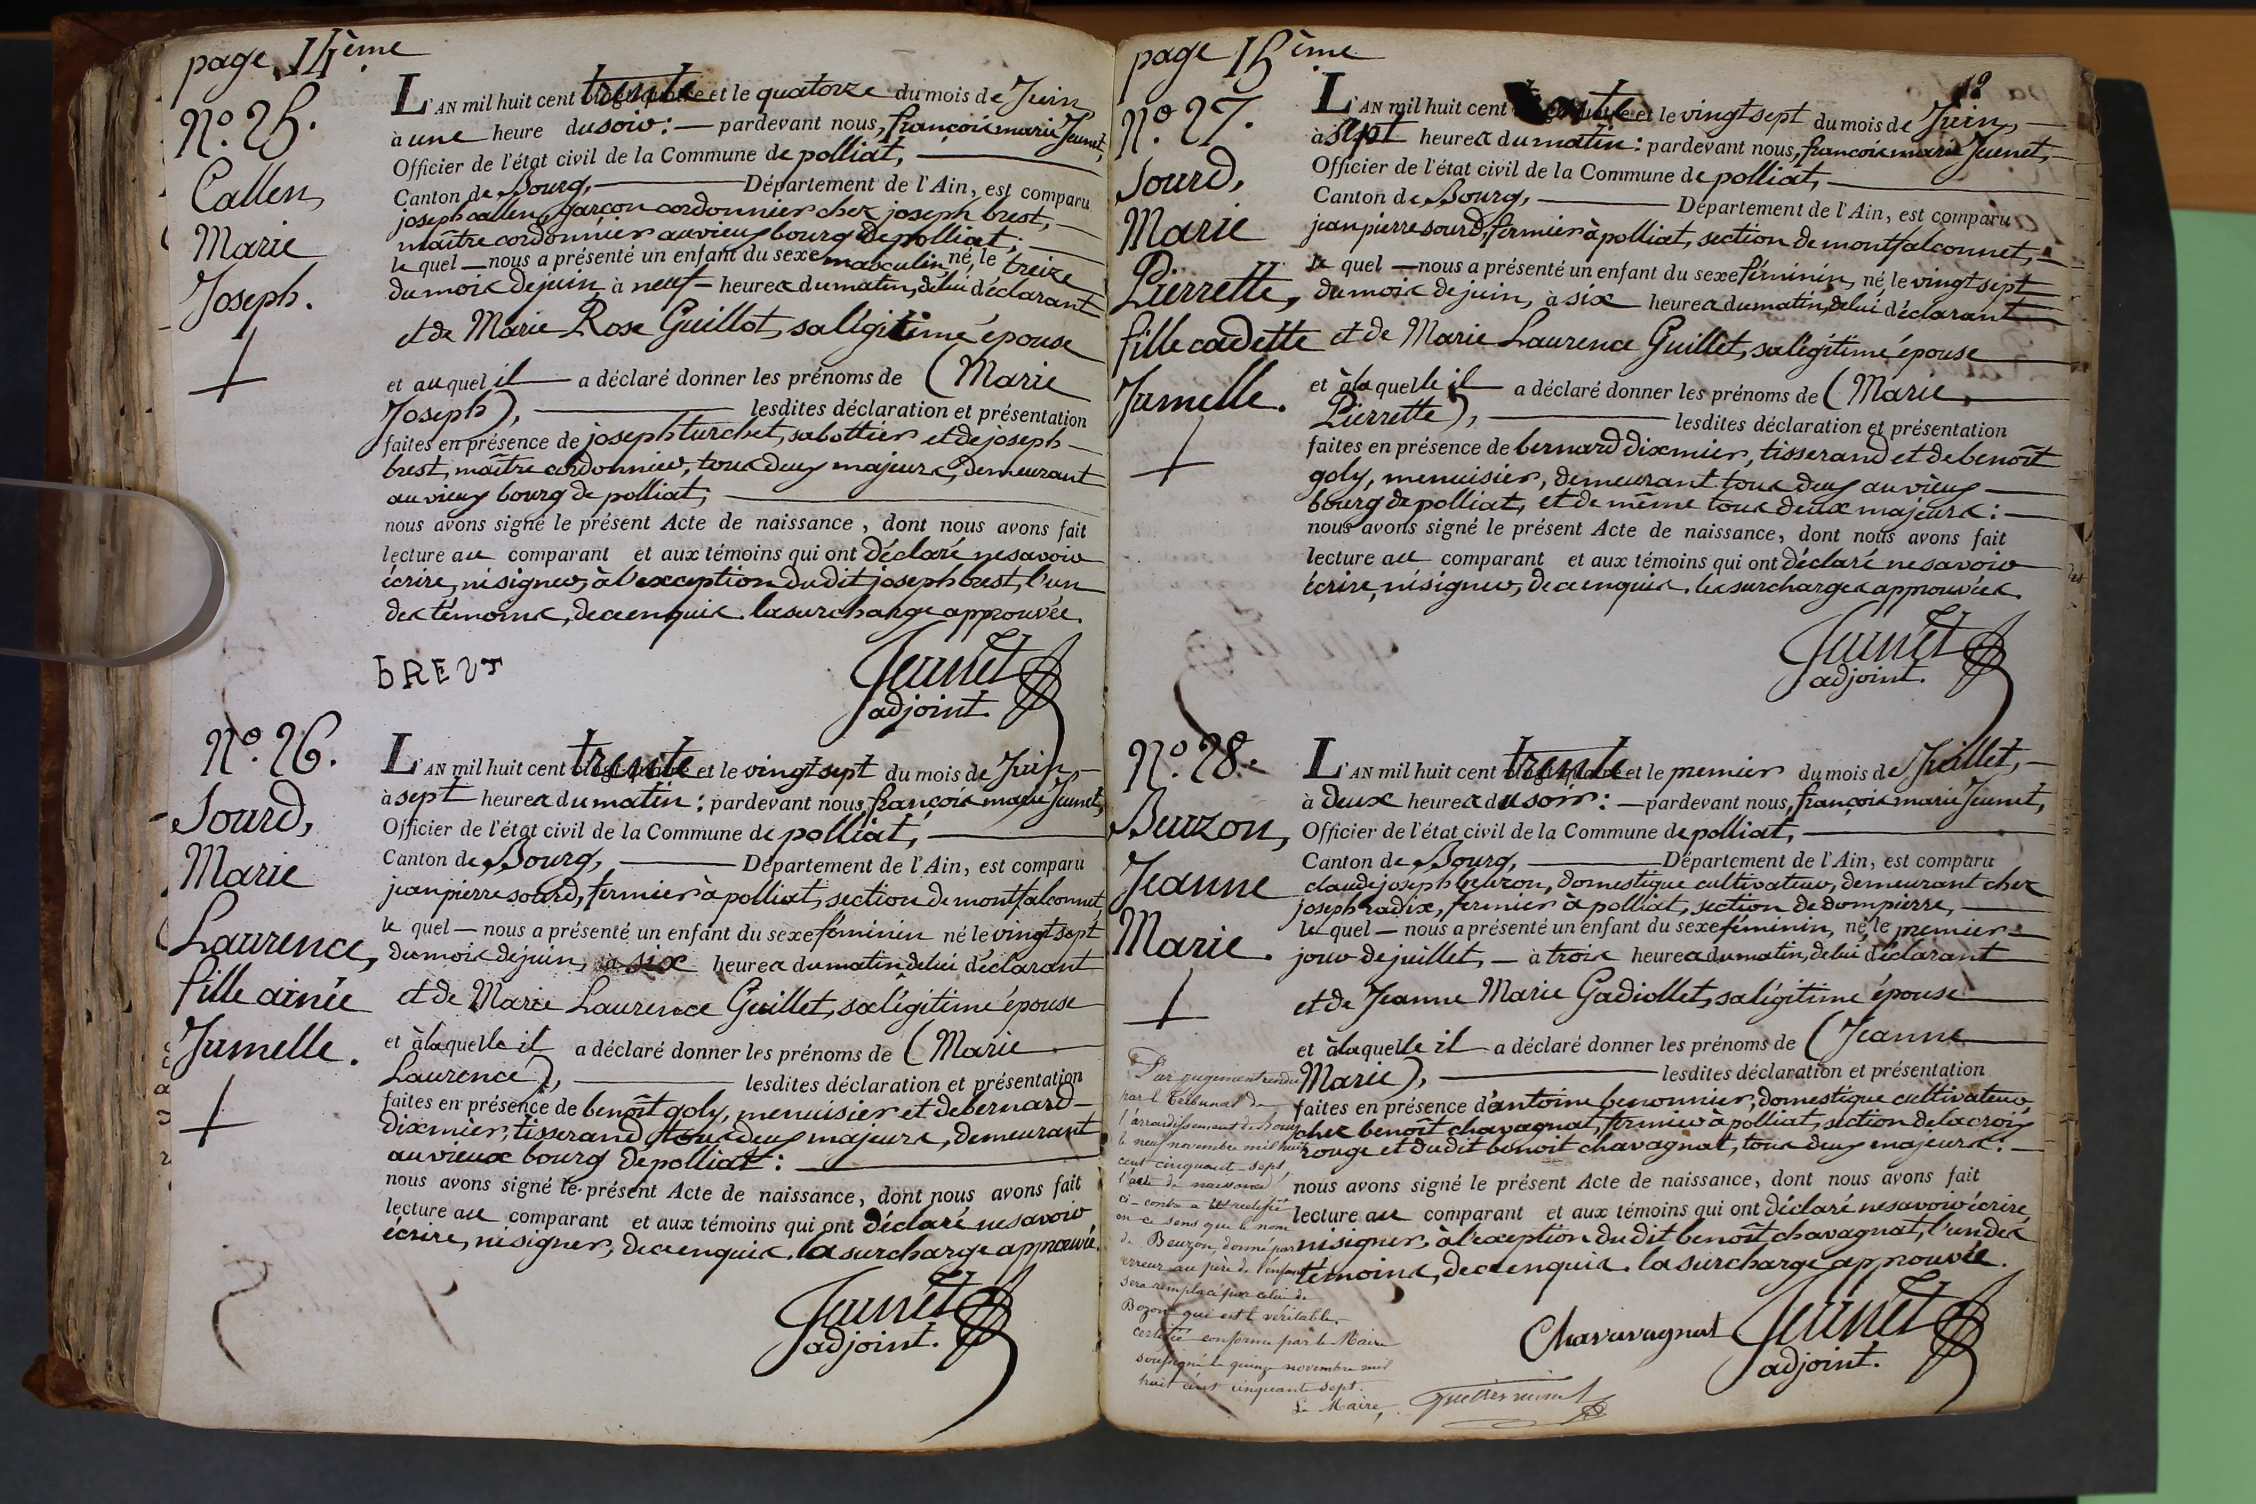 page 14ème
N.º 25.
Callen,
Marie
Joseph.
L'AN mil huit cent trente et le quatorze du mois de Juin
à une heure du soir: — pardevant nous, françois marie Jeunet,
Officier de l'état civil de la Commune de polliat,
Canton de Bourg, Département de l'Ain, est comparu
joseph callen, garçon cordonnier chez joseph brest,
maître cordonnier au vieux bourg de polliat,
le quel — nous a présenté un enfant du sexe masculin, né, le treize
du mois de juin, à neuf — heures du matin, de lui déclarant
et de Marie Rose Guillot, sa légitime épouse
et au quel il — a déclaré donner les prénoms de (Marie
Joseph), lesdites déclaration et présentation
faites en présence de joseph turchet, sabottier et de joseph
brest, maître cordonnier, tous deux majeurs, demeurant
au vieux bourg de polliat,
nous avons signé le présent Acte de naissance, dont nous avons fait
lecture au comparant et aux témoins qui ont déclaré ne savoir
écrire, ni signer, à l'exception du dit joseph brest, l'un
des témoins, de ce enquis. la surcharge approuvée.
bREST
Jeunet
adjoint.
N.º 26.
Sourd,
Marie
Laurence,
fille ainée
Jumelle.
L'AN mil huit cent trente et le vingt sept du mois de Juin,
à sept heures du matin: pardevant nous, françois marie Jeunet,
Officier de l'état civil de la Commune de polliat,
Canton de Bourg, Département de l'Ain, est comparu
jean pierre sourd, fermier à polliat, section de montfalconnet,
le quel — nous a présenté un enfant du sexe féminin né le vingt sept
du mois de juin, à six heures du matin, de lui déclarant
et de Marie Laurence Guillet, sa légitime épouse
et à la quelle il a déclaré donner les prénoms de (Marie
Laurence), lesdites déclaration et présentation
faites en présence de benoît goly, menuisier et de bernard
dixmier, tisserand, tous deux majeurs, demeurant
au vieux bourg de polliat:
nous avons signé le présent Acte de naissance, dont nous avons fait
lecture au comparant et aux témoins qui ont déclaré ne savoir
écrire, ni signer, de ce enquis. la surcharge approuvée.
Jeunet
adjoint.
page 15ème
N.º 27.
Sourd,
Marie
Pierrette,
fille cadette
Jumelle.
L'AN mil huit cent trente et le vingt sept du mois de Juin,
à sept heures du matin: pardevant nous, françois marie Jeunet,
Officier de l'état civil de la Commune de polliat,
Canton de Bourg, Département de l'Ain, est comparu
jean pierre sourd, fermier à polliat, section de montfalconnet,
le quel — nous a présenté un enfant du sexe féminin, né, le vingt sept
du mois de juin, à six heures du matin, de lui déclarant
et de Marie Laurence Guillet, sa légitime épouse
et à la quelle il a déclaré donner les prénoms de (Marie
Pierrette), lesdites déclaration et présentation
faites en présence de bernard dixmier, tisserand et de benoît
goly, menuisier, demeurant tous deux au vieux
bourg de polliat, et de même tous deux majeurs:
nous avons signé le présent Acte de naissance, dont nous avons fait
lecture au comparant et aux témoins qui ont déclaré ne savoir
écrire, ni signer, de ce enquis. les surcharges approuvées.
Jeunet
adjoint.
N.º 28.
Beuzon,
Jeanne
Marie.
L'AN mil huit cent trente et le premier du mois de Juillet,
à deux heures du soir: — pardevant nous, françois marie Jeunet,
Officier de l'état civil de la Commune de polliat,
Canton de Bourg, Département de l'Ain, est comparu
claude joseph beuzon, domestique cultivateur, demeurant chez
joseph radix, fermier à polliat, section de dompierre,
le quel — nous a présenté un enfant du sexe féminin, né, le premier
jour de juillet, — à trois heures du matin, de lui déclarant
et de Jeanne Marie Gadiollet, sa légitime épouse
et à la quelle il — a déclaré donner les prénoms de (Jeanne
Marie), lesdites déclaration et présentation
faites en présence d'antoine benonnier, domestique cultivateur
chez benoît chavagnat, fermier à polliat, section de la croix
rouge et du dit benoit chavagnat, tous deux majeurs:
nous avons signé le présent Acte de naissance, dont nous avons fait
lecture au comparant et aux témoins qui ont déclaré ne savoir écrire,
ni signer, à l'exception du dit benoît chavagnat, l'un des
témoins, de ce enquis. la surcharge approuvée.
Chavavagnat Jeunet
adjoint.
Par jugement rendu
par le Tribunal de
l'arrondissement de Bourg
le neuf novembre mil huit
cent cinquante-sept,
l'acte de naissance
ci-contre a été rectifié
en ce sens que le nom
de Beuzon, donné par
erreur au père de l'enfant
sera remplacé par celui de
Bozon qui est le véritable.
certifié conforme par le Maire
soussigné le quinze novembre mil
huit cent cinquante sept.
Le Maire,